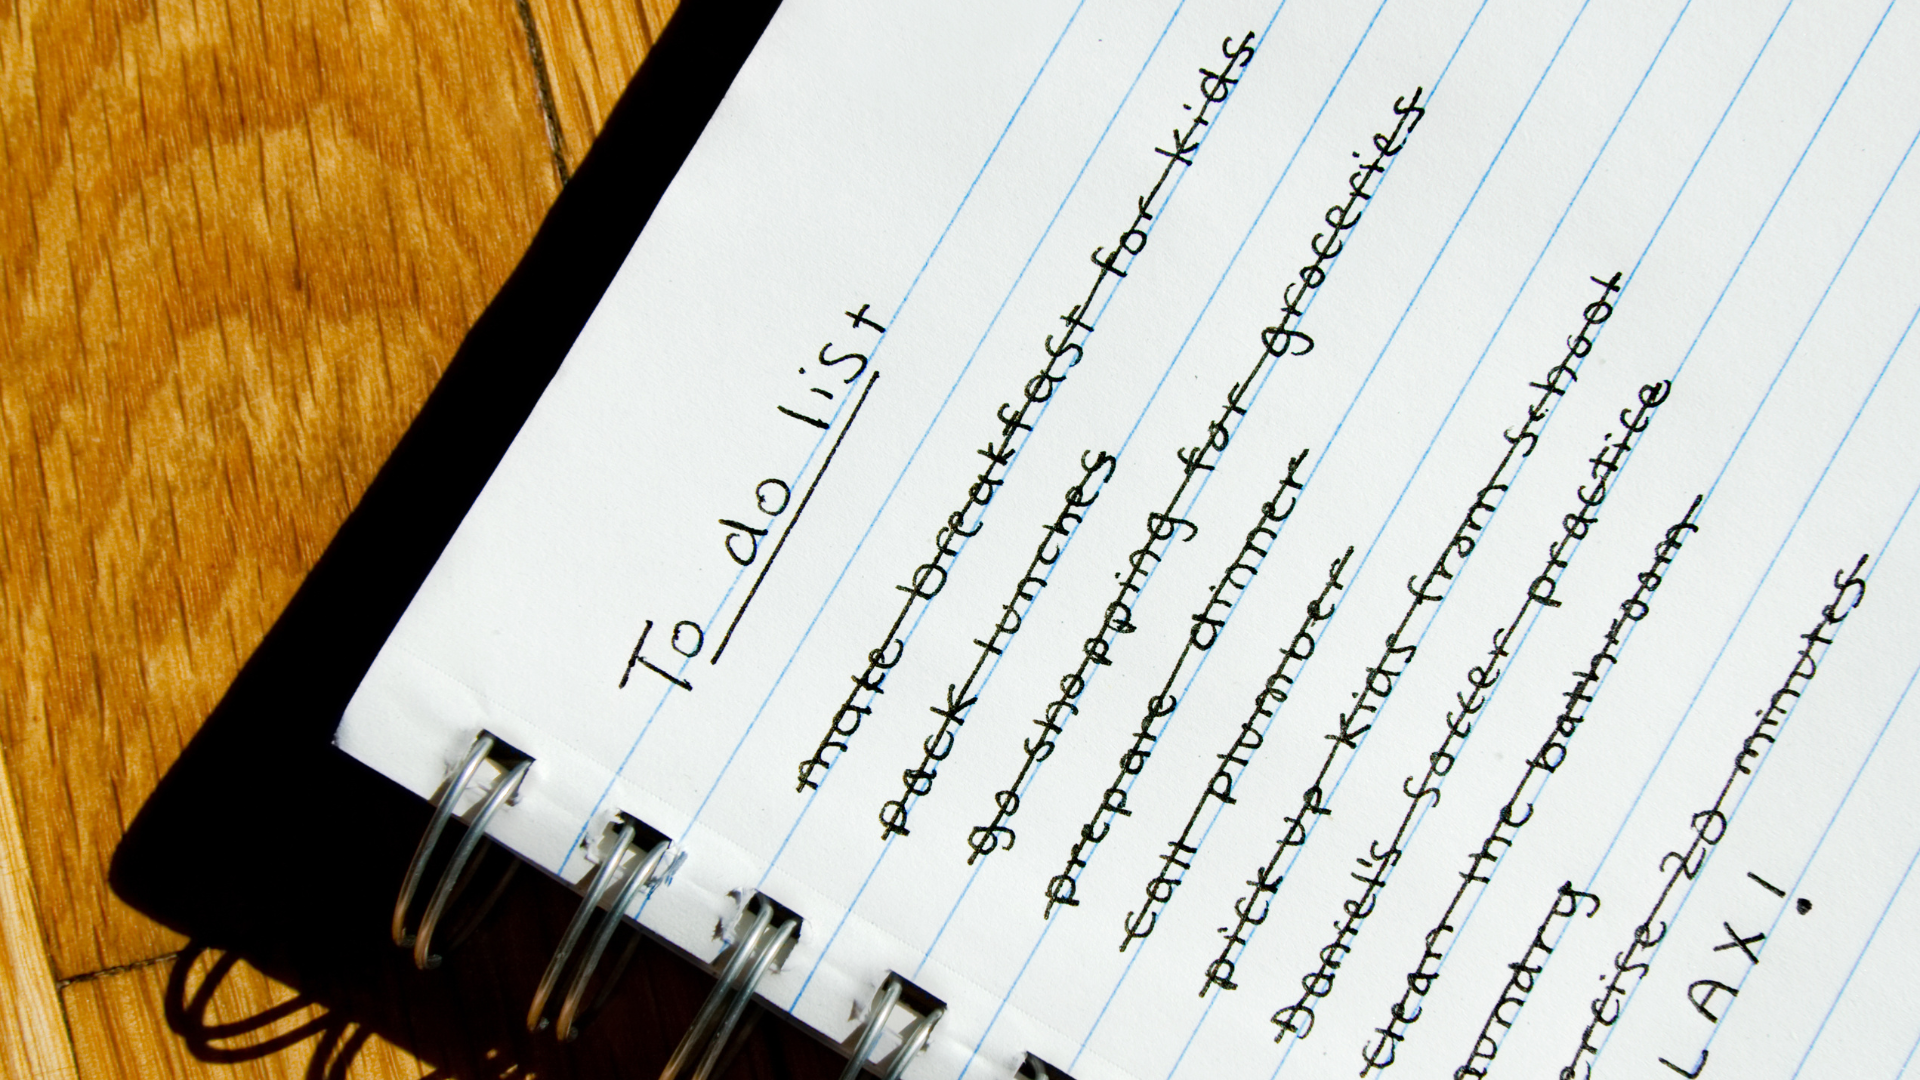 To do list
make breakfast for kids
pack lunches
go shopping for groceries
prepare dinner
call plumber
pick up kids from school
Daniel's soccer practice
clean the bathroom
aundry
ercise 20 minutes
LAX!